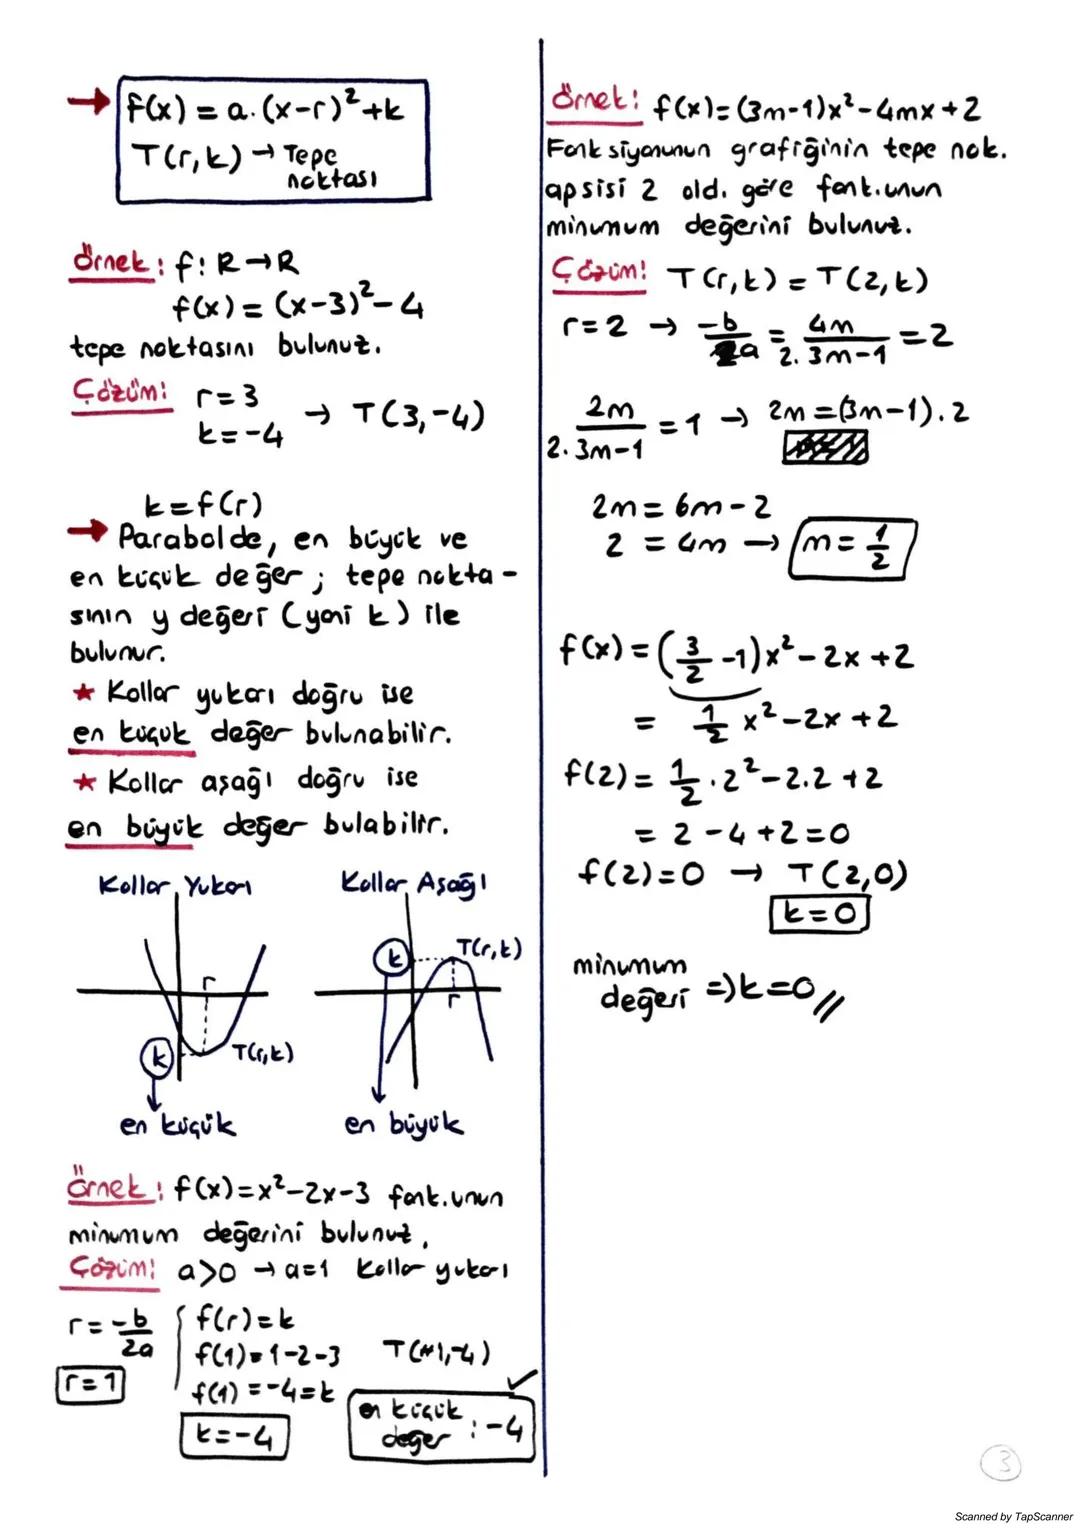 → f(x) = a.(x-r)²+k
T(r,k) → Tepe
noktası
Örnek: f: R→R
f(x) = (x-3)²-4
tepe noktasını bulunuz.
Çözüm: r=3
k=-4 → T(3,-4)
k=f(r)
→ Parabolde, en büyük ve
en küçük değer ; tepe nokta-
sının y değeri (yani k) ile
bulunur.
★ Kollar yukarı doğru ise
en küçük değer bulunabilir.
★ Kollar aşağı doğru ise
en büyük değer bulabilir.
Kollar Yukarı
r
k
T(r,k)
en küçük
Kollar Aşağı
k
T(r,k)
r
en büyük
Örnek: f(x)=x²-2x-3 fonk.unun
minumum değerini bulunuz.
Çözüm: a>0 → a=1 kollar yukarı
r=-b/2a
r=1
f(r)=k
f(1)=1-2-3
f(1)=-4=k
k=-4
T(1,-4)
en küçük
değer : -4
Örnek: f(x)=(3m-1)x²-4mx+2
Fonksiyonunun grafiğinin tepe nok.
apsisi 2 old. göre fonk.unun
minumum değerini bulunuz.
Çözüm: T(r,k) = T(2,k)
r=2 → -b/2a = 4m/2.3m-1 = 2
2m/2.3m-1 = 1 → 2m=(3m-1).2
2m = 6m-2
2 = 4m → m=1/2
f(x) = (3/2-1)x²-2x+2
= 1/2 x²-2x+2
f(2) = 1/2.2²-2.2+2
= 2-4+2=0
f(2)=0 → T(2,0)
k=0
minumum
değeri => k=0 //
3
Scanned by TapScanner